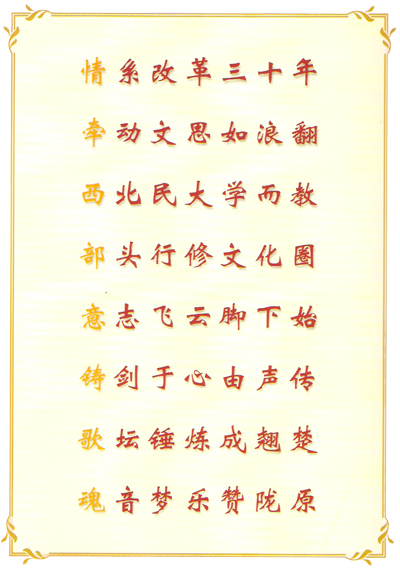 情系改革三十年
牵动文思如浪翻
西北民大学而教
部头行修文化圈
意志飞云脚下始
铸剑于心由声传
歌坛锤炼成翘楚
魂音梦乐赞陇原